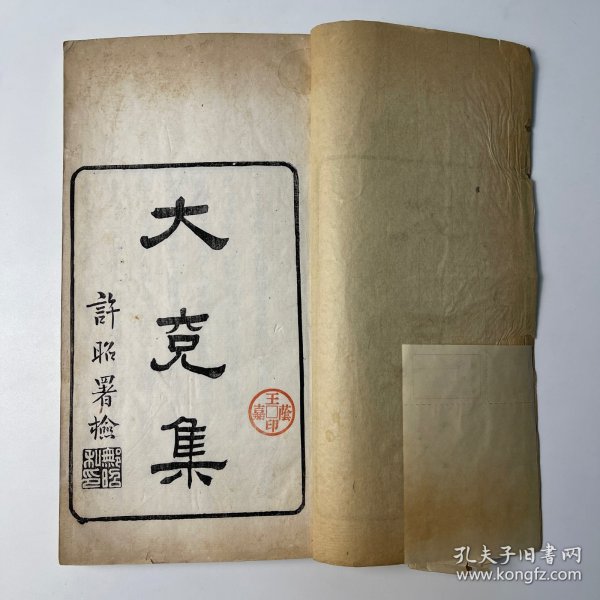 大克集
許昭署檢
王
嘉□蔭
印
孔夫子旧书网
www.kongfz.com